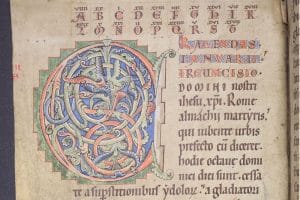 A B C D E F G H I K
L M N O P Q R S T
KALENDAS
IANVARII
IRCUMCISIO
DOMINI nostri
ihesu xpi. Rome
almachii martyris.
qui iubente urbis
prefecto cũ diceret.
hodie octaue domi
nici dies sunt, cessa
te a supstitionibus ydolor. & a gladiatori